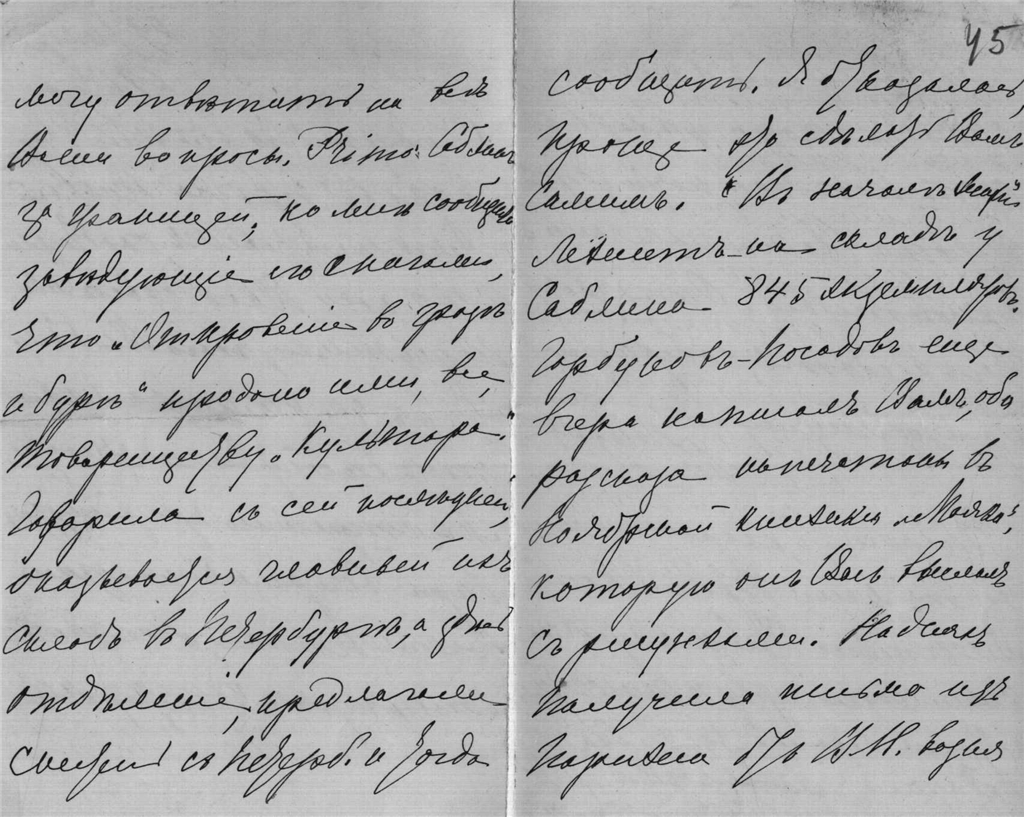 могу отвѣтить на всѣ
Ваши вопросы. Primo: Саблинъ
за границей, но мнѣ сообщили
завѣдующіе его складами,
что „Откровеніе въ грозѣ
и бурѣ“ продано ими, все,
товариществу „Культура“.
Говорила съ сей послѣдней,
оказывается главный ихъ
складъ въ Петербургѣ, а здѣсь
отдѣленіе, предлагали
снестись съ Петерб. и тогда
45
сообщить. Я отказалась,
проще это сдѣлать Вамъ
Самимъ. Въ началѣ
Лежитъ на складѣ у
Саблина 845 экземпляровъ.
Горбуновъ-Посадовъ еще
вчера написалъ Вамъ, оба
разсказа напечатаны въ
Ноябрской книжкѣ „Маяка“,
которую онъ Вамъ выслалъ
съ рисунками. На дняхъ
получила письмо изъ
Парижа отъ В.Н.